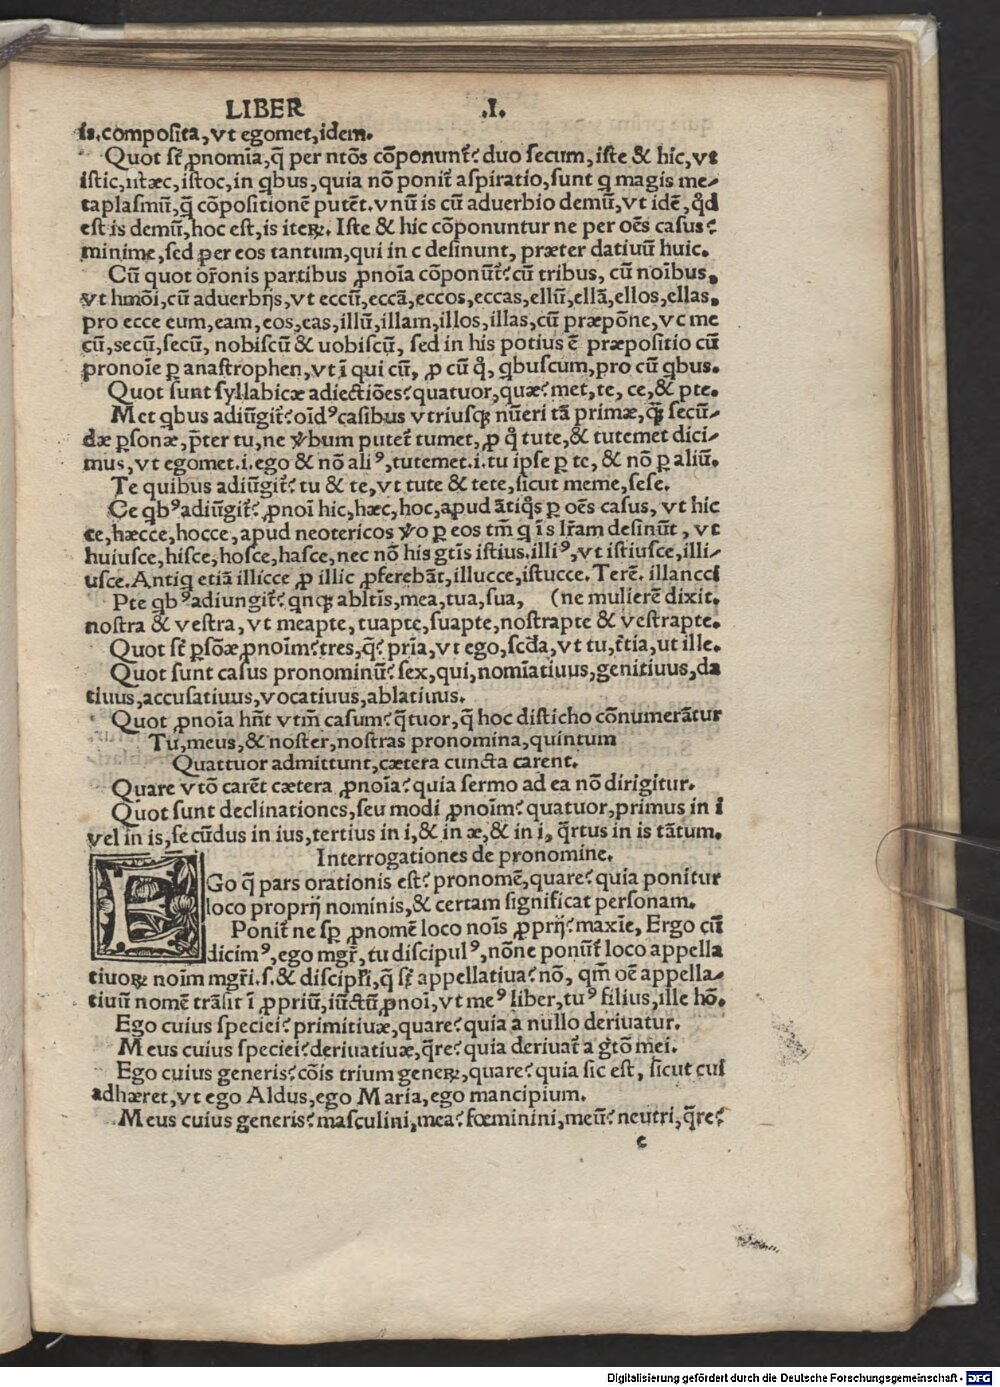 LIBER .I.
is.composita,vt egomet,idem.
Quot st̃ ꝓnomĩa,q̃ per ntõs cõponunt̃?duo secum,iste & hic,vt
istic,istæc,istoc,in qbus,quia nõ ponit̃ aspiratio,sunt q magis me-
taplasmũ,q̃ cõpositionẽ putẽt.vnũ is cũ aduerbio demũ,vt idẽ,qd̃
est is demũ,hoc est,is iteꝝ. Iste & hic cõponuntur ne per oẽs casus?
minime,sed per eos tantum,qui in c desinunt, præter datiuũ huic.
Cũ quot or̃onis partibus ꝓnoĩa cõponũt̃?cũ tribus, cũ noĩbus,
vt hmõi,cũ aduerbijs,vt eccũ,eccã,eccos,eccas,ellũ,ellã,ellos,ellas,
pro ecce eum,eam,eos,eas,illũ,illam,illos,illas,cũ præpõne,vt me
cũ,tecũ,secũ, nobiscũ & uobiscũ, sed in his potius ẽ præpositio cũ
pronoĩe ꝑ anastrophen,vt ĩ qui cũ, ꝓ cũ q°, qbuscum,pro cũ qbus.
Quot sunt syllabicæ adiectiões?quatuor,quæ?met,te, ce,& pte.
Met qbus adiũgit̃?oĩbꝰcasibus vtriusqꝫ nũeri tã primæ,q̃ꝫ secũ-
dæ ꝑsonæ,p̃ter tu,ne ṽbum putet̃ tumet,ꝓ q° tute,& tutemet dici-
mus,vt egomet.i.ego & nõ aliꝰ,tutemet.i.tu ipse ꝑ te, & nõ ꝑ aliũ.
Te quibus adiũgit̃?tu & te,vt tute & tete,sicut meme,sese.
Ce qbꝰadiũgit̃?ꝓnoĩ hic,hæc,hoc,apud ãtiqs̊ ꝑ oẽs casus, vt hic
ce,hæcce,hocce,apud neotericos ṽo ꝑ eos tm̃ q ĩ s lr̃am desinũt, vt
huiusce,hisce,hosce,hasce,nec nõ his gtĩs istius.illiꝰ,vt istiusce,illi-
usce.Antiq etiã illicce ꝓ illic ꝓferebãt,illucce,istucce. Terẽ. illancci
Pte qbꝰadiungit̃?qnqꝫ abltĩs,mea,tua,sua, (ne mulierẽ dixit.
nostra & vestra, vt meapte, tuapte,suapte,nostrapte & vestrapte.
Quot st̃ ꝑsõæꝓnoĩm?tres,q̃?pr̃ia,vt ego,scd̃a,vt tu,t̃tia,ut ille.
Quot sunt casus pronominũ? sex,qui,nomĩatiuus,genitiuus,da
tiuus,accusatiuus,vocatiuus,ablatiuus.
Quot ꝓnoĩa hñt vtm̃ casum?q̃tuor,q̃ hoc disticho cõnumerãtur
Tu,meus,& noster,nostras pronomina,quintum
Quattuor admittunt,cætera cuncta carent.
Quare vtõ carẽt cætera ꝓnoĩa?quia sermo ad ea nõ dirigitur.
Quot sunt declinationes,seu modi ꝓnoĩm?quatuor,primus in i
vel in is,secũdus in ius,tertius in i,& in æ,& in i, q̃rtus in is tãtum.
Interrogationes de pronomine.
EGo q̃ pars orationis est? pronomẽ,quare?quia ponitur
loco proprij nominis,& certam significat personam.
Ponit̃ ne sꝑ ꝓnomẽ loco noĩs ꝓprij? maxĩe, Ergo cũ
dicimꝰ,ego mgr̃,tu discipulꝰ,nõne ponũt̃ loco appella
tiuoꝝ noĩm mgr̃i.s.& discipl̃i,q̃ st̃ appellatiua?nõ, qm̃ oẽ appella-
tiuũ nomẽ trãsit ĩ ꝓpriũ,iũctũꝓnoĩ,vt meꝰ liber,tuꝰ filius,ille hõ.
Ego cuius speciei? primitiuæ,quare?quia a nullo deriuatur.
Meus cuius speciei?deriuatiuæ,q̃re?quia deriuat̃ a gtõ mei.
Ego cuius generis?cõis trium geneꝝ,quare?quia sic est, sicut cui
adhæret,vt ego Aldus,ego Maria,ego mancipium.
Meus cuius generis?masculini,mea?fœminini,meũ? neutri,q̃re?
c
Digitalisierung gefördert durch die Deutsche Forschungsgemeinschaft - DFG